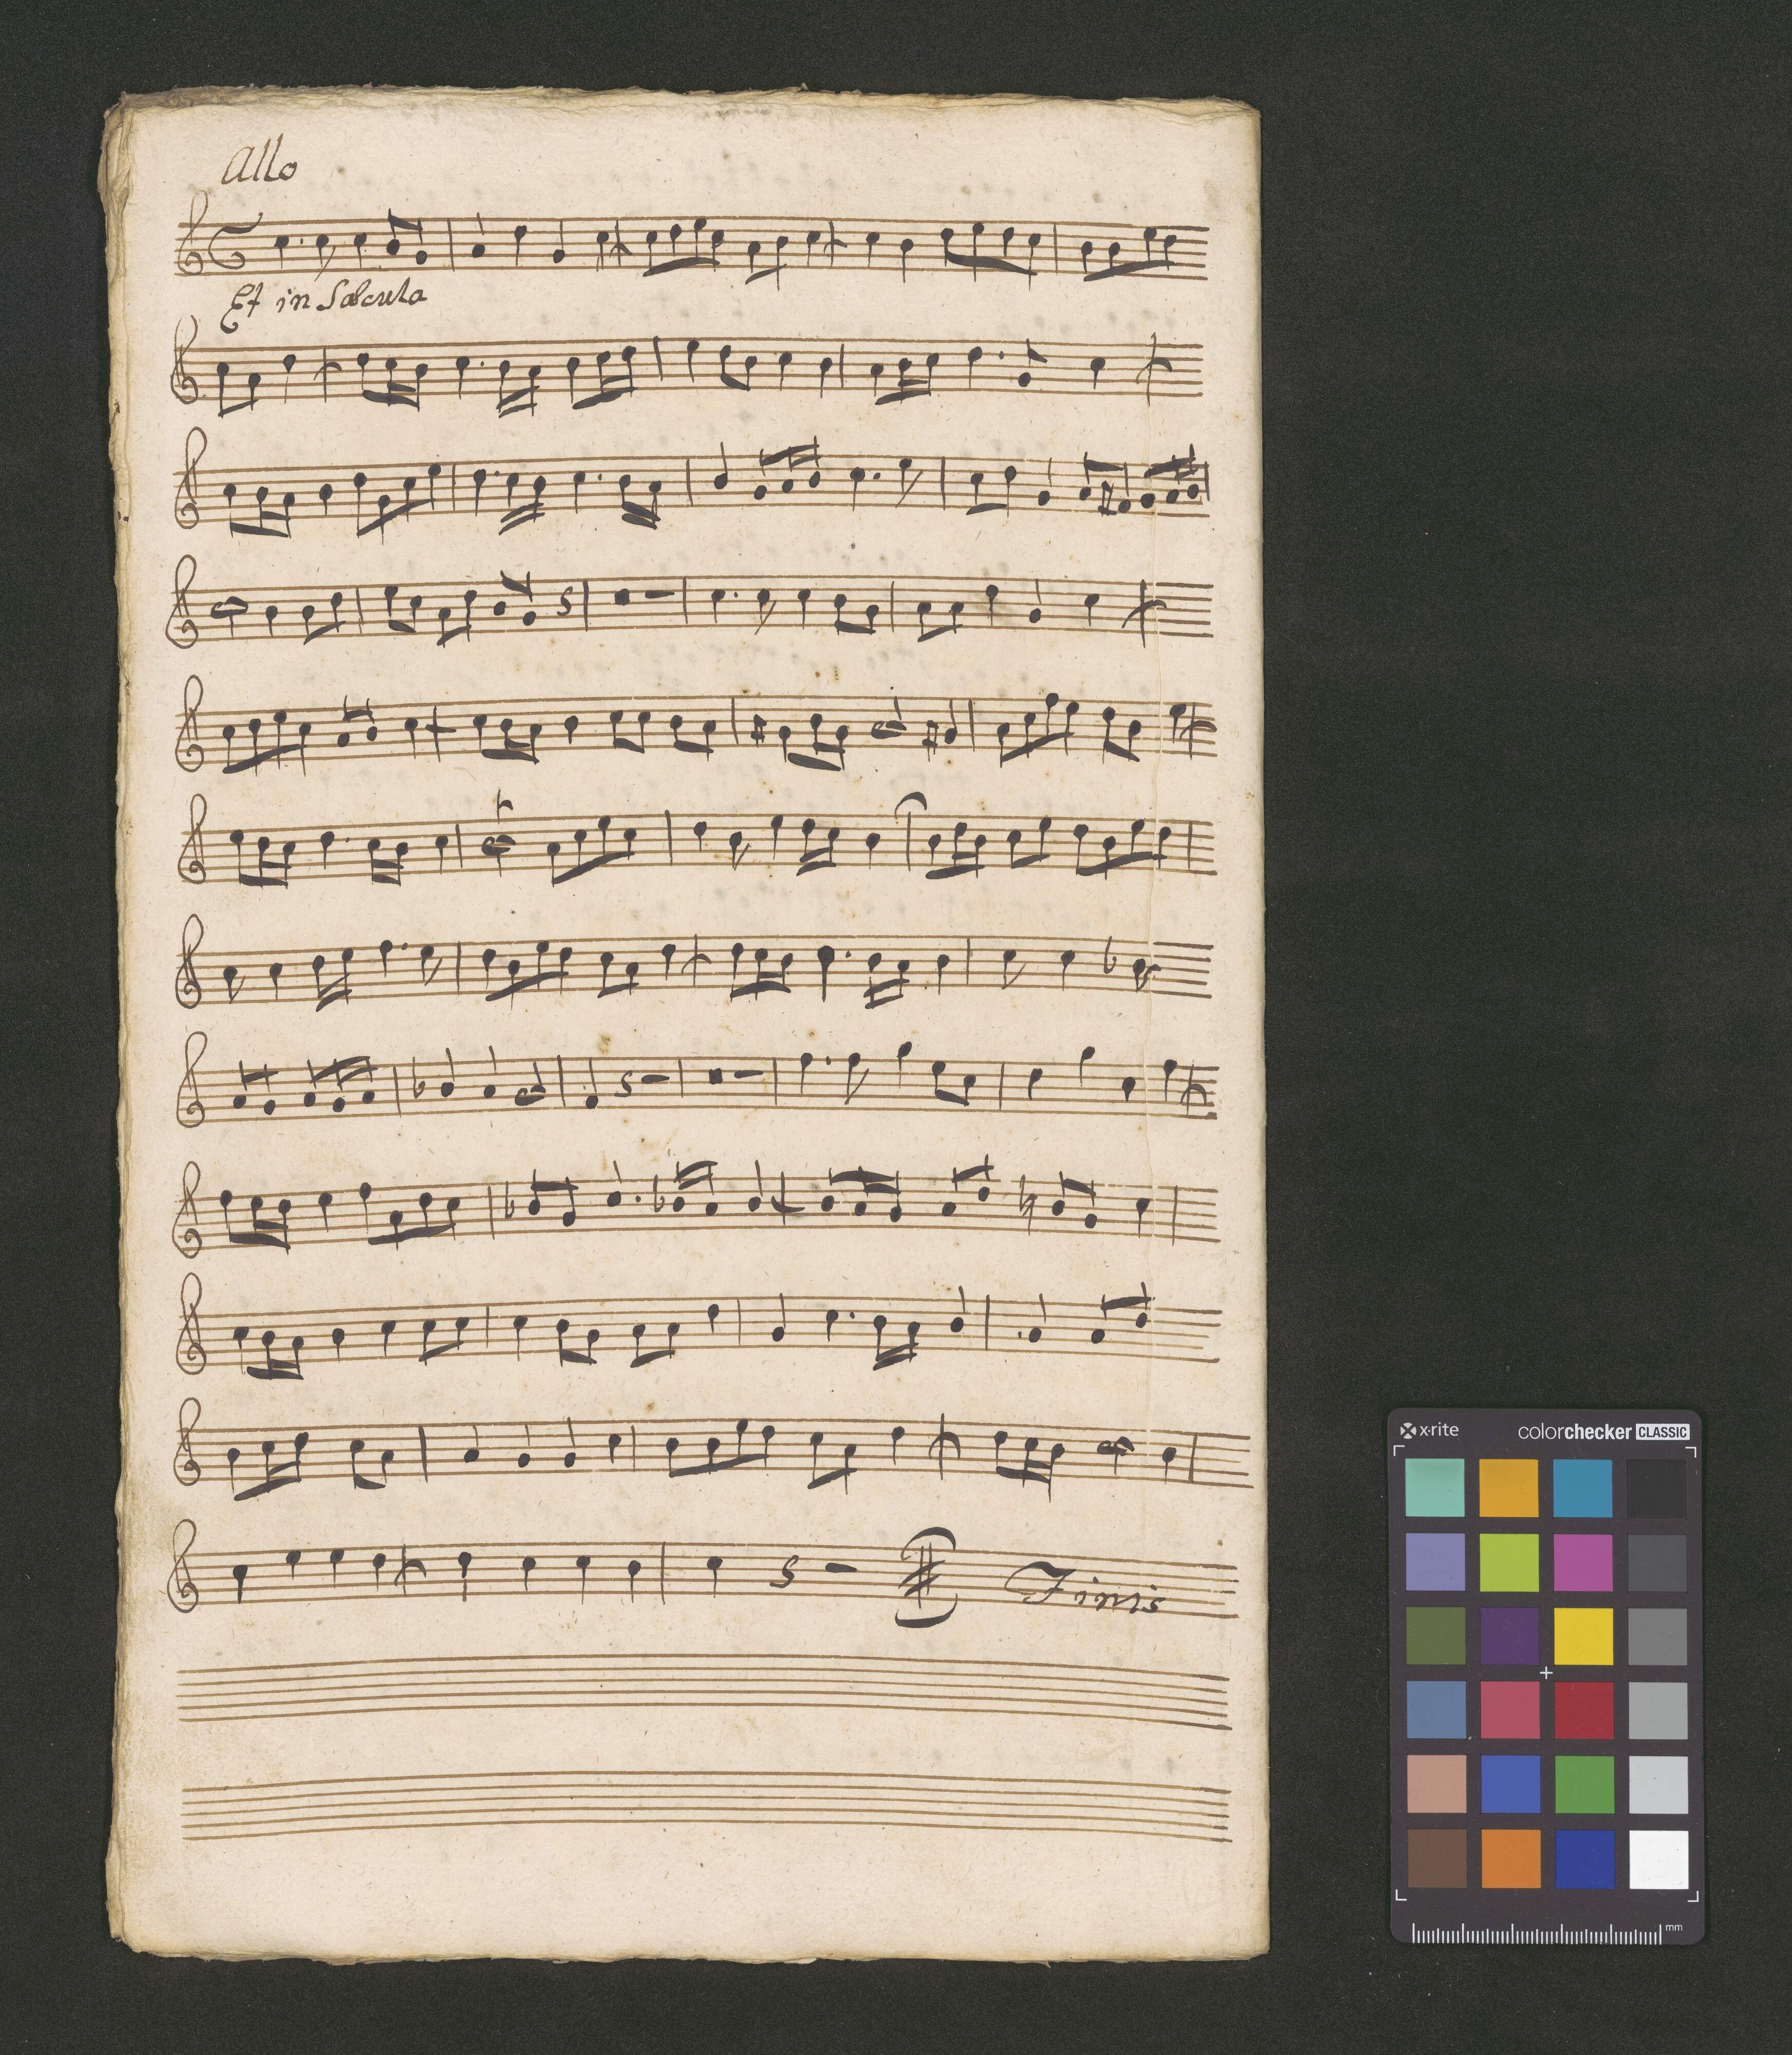 Allo
Et in Sæcula
Finis
x-rite
colorchecker CLASSIC
mm